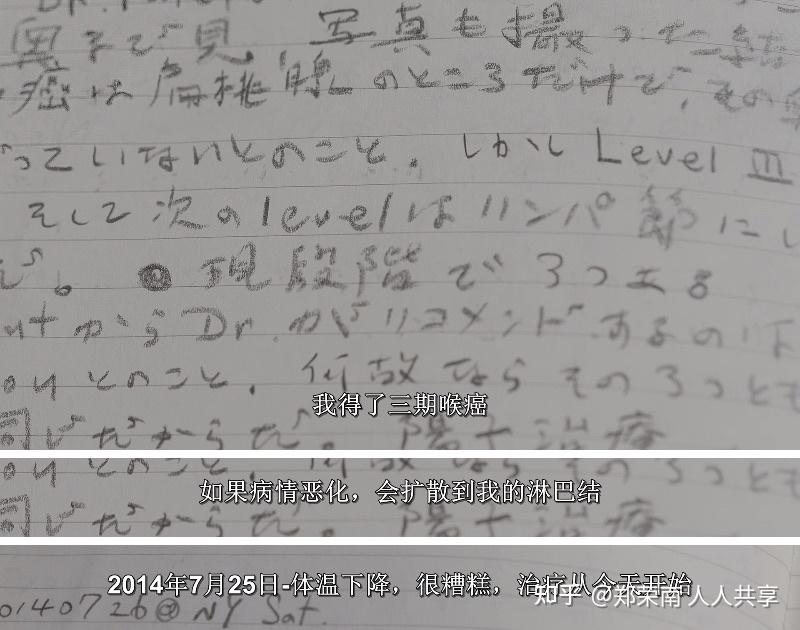 異子で見、写真も撮った
癌は扁桃腺のところだけで、その
っていないとのこと。しかし Level III
そして次のlevelはリンパ節に
だ。現段階で3つ
からDr.がリコメンドするのは
とのこと。何故ならその3つとも
我得了三期喉癌
同じだからだ。陽子治療
とのこと。何故ならその3つとも
如果病情恶化，会扩散到我的淋巴结
同じだからだ。陽子治療
2014年7月25日-体温下降，很糟糕，治疗从今天开始
20140726@NY Sat.
知乎 @郑荣南 人人共享